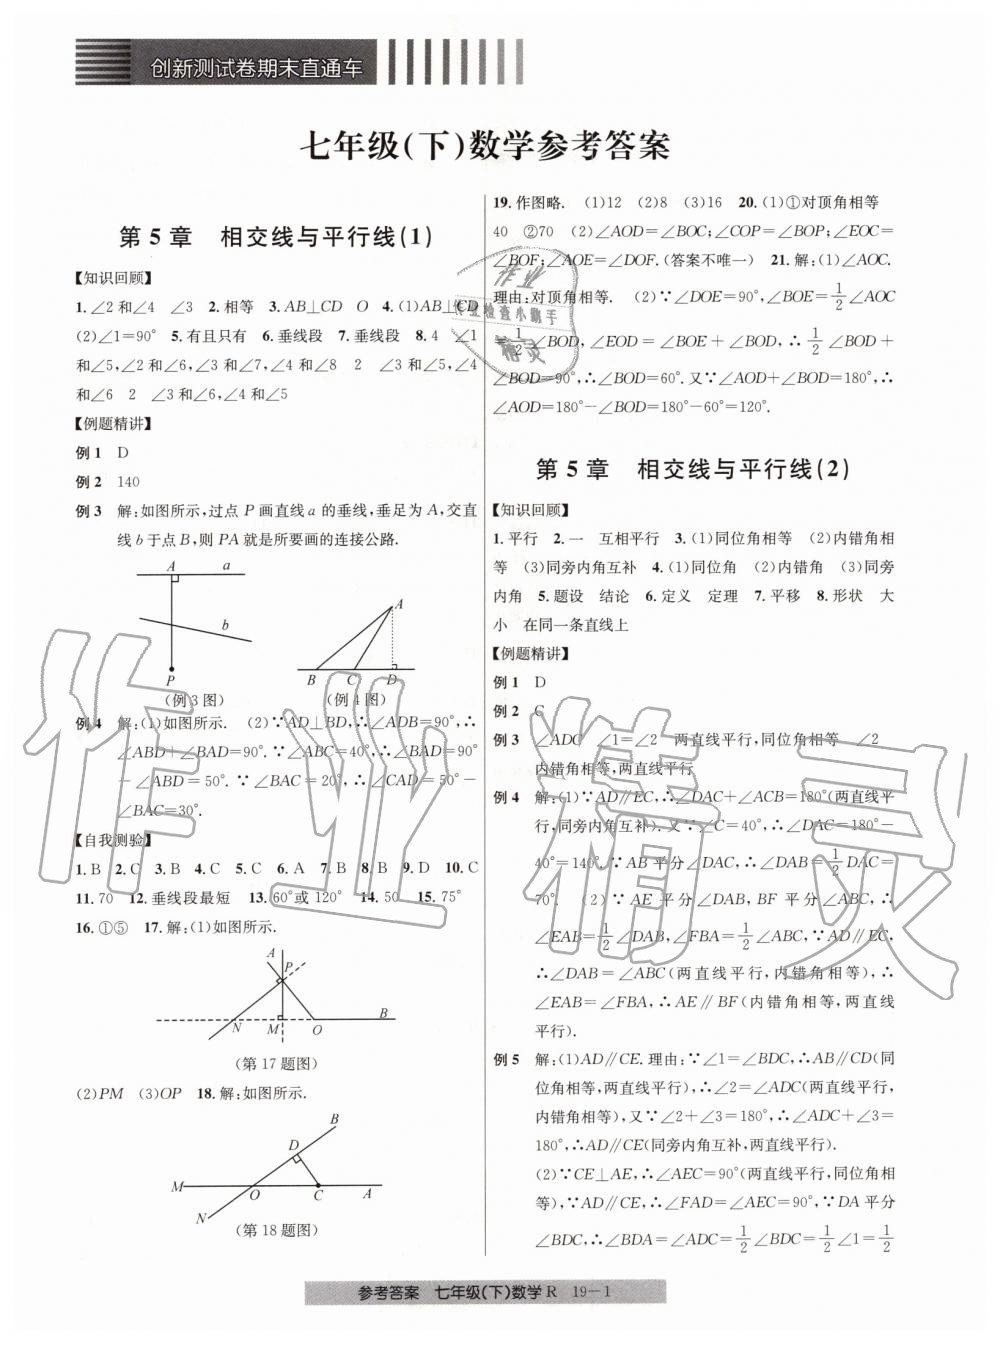 创新测试卷期末直通车
七年级(下)数学参考答案
第 5 章　相交线与平行线(1)
【知识回顾】
1. ∠2 和∠4　∠3　2. 相等　3. AB⊥CD　O　4. (1)AB⊥CD
(2)∠1=90°　5. 有且只有　6. 垂线段　7. 垂线段　8. 4　∠1
和∠5,∠2 和∠6,∠3 和∠7,∠4 和∠8　2　∠3 和∠5,∠4
和∠6　2　∠3 和∠6,∠4 和∠5
【例题精讲】
例 1　D
例 2　140
例 3　解:如图所示,过点 P 画直线 a 的垂线,垂足为 A,交直
线 b 于点 B,则 PA 就是所要画的连接公路.
A　a
b
P
(例 3 图)
A
B　C　D
(例 4 图)
例 4　解:(1)如图所示.　(2)∵AD⊥BD,∴∠ADB=90°,∴
∠ABD+∠BAD=90°.∵∠ABC=40°,∴∠BAD=90°
－∠ABD=50°.∵∠BAC=20°,∴∠CAD=50°－
∠BAC=30°.
【自我测验】
1. B　2. C　3. B　4. C　5. C　6. A　7. B　8. B　9. D　10. C
11. 70　12. 垂线段最短　13. 60°或 120°　14. 50　15. 75°
16. ①⑤　17. 解:(1)如图所示.
A
P
N　M　O　B
(第 17 题图)
(2)PM　(3)OP　18. 解:如图所示.
B
D
M　O　C　A
N
(第 18 题图)
19. 作图略.　(1)12　(2)8　(3)16　20. (1)①对顶角相等
40　②70　(2)∠AOD=∠BOC;∠COP=∠BOP;∠EOC=
∠BOF;∠AOE=∠DOF.(答案不唯一)　21. 解:(1)∠AOC.
理由:对顶角相等.　(2)∵∠DOE=90°,∠BOE=1/2∠AOC
=1/2∠BOD,∠EOD=∠BOE+∠BOD,∴1/2∠BOD+
∠BOD=90°,∴∠BOD=60°.又∵∠AOD+∠BOD=180°,∴
∠AOD=180°－∠BOD=180°－60°=120°.
第 5 章　相交线与平行线(2)
【知识回顾】
1. 平行　2. 一　互相平行　3. (1)同位角相等　(2)内错角相
等　(3)同旁内角互补　4. (1)同位角　(2)内错角　(3)同旁
内角　5. 题设　结论　6. 定义　定理　7. 平移　8. 形状　大
小　在同一条直线上
【例题精讲】
例 1　D
例 2　C
例 3　∠ADC　∠1=∠2　两直线平行,同位角相等　∠2
内错角相等,两直线平行
例 4　解:(1)∵AD∥EC,∴∠DAC+∠ACB=180°(两直线平
行,同旁内角互补).又∵∠C=40°,∴∠DAC=180°－
40°=140°.∵AB 平分∠DAC,∴∠DAB=1/2 DAC=
70°.　(2)∵AE 平分∠DAB,BF 平分∠ABC,∴
∠EAB=1/2∠DAB,∠FBA=1/2∠ABC,∵AD∥EC,
∴∠DAB=∠ABC(两直线平行,内错角相等),∴
∠EAB=∠FBA,∴AE∥BF(内错角相等,两直线
平行).
例 5　解:(1)AD∥CE.理由:∵∠1=∠BDC,∴AB∥CD(同
位角相等,两直线平行),∴∠2=∠ADC(两直线平行,
内错角相等),又∵∠2+∠3=180°,∴∠ADC+∠3=
180°,∴AD∥CE(同旁内角互补,两直线平行).
(2)∵CE⊥AE,∴∠AEC=90°(两直线平行,同位角相
等),∵AD∥CE,∴∠FAD=∠AEC=90°,∵DA 平分
∠BDC,∴∠BDA=∠ADC=1/2∠BDC=1/2∠1=1/2
参考答案　七年级(下)数学 R　19－1
作业
作业检查小助手
精灵
作业精灵